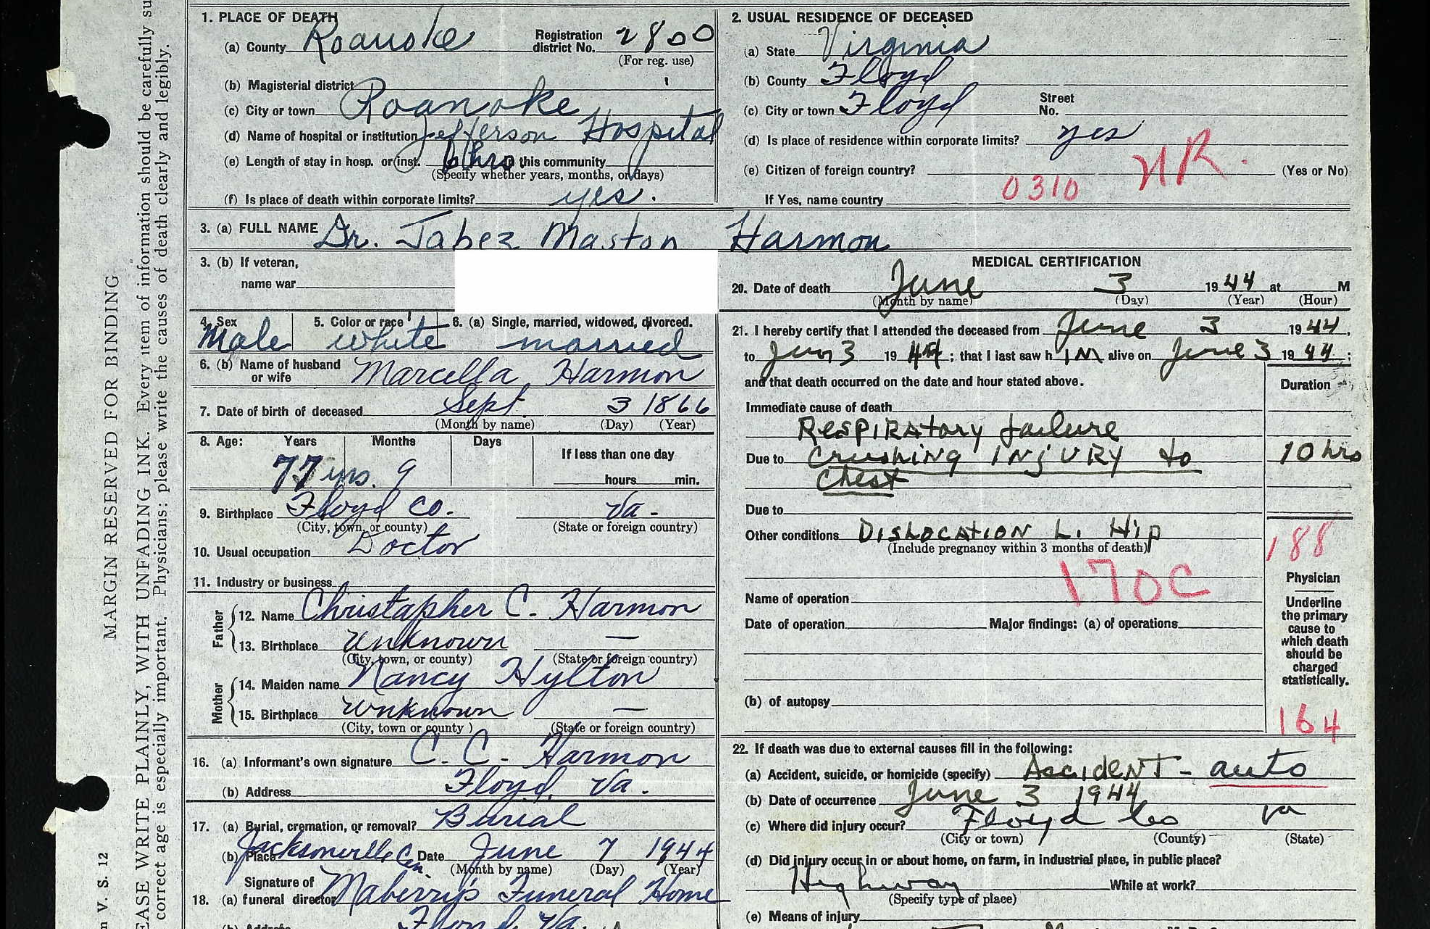 MARGIN RESERVED FOR BINDING
EASE WRITE PLAINLY, WITH UNFADING INK. Every item of information should be carefully su
correct age is especially important. Physicians: please write the causes of death clearly and legibly.
V. S. 12
1. PLACE OF DEATH
(a) County Roanoke Registration district No. 2800
(For reg. use)
(b) Magisterial district
(c) City or town Roanoke
(d) Name of hospital or institution Jefferson Hospital
(e) Length of stay in hosp. or inst. 6 hrs this community
(Specify whether years, months, or days)
(f) Is place of death within corporate limits? yes.
2. USUAL RESIDENCE OF DECEASED
(a) State Virginia
(b) County Floyd
(c) City or town Floyd Street No.
(d) Is place of residence within corporate limits? yes
(e) Citizen of foreign country? (Yes or No)
NR.
0310
If Yes, name country
3. (a) FULL NAME Dr. Jabez Maston Harmon
3. (b) If veteran,
name war
4. Sex Male 5. Color or race white 6. (a) Single, married, widowed, divorced. married
6. (b) Name of husband or wife Marcella Harmon
7. Date of birth of deceased Sept. 3 1866
(Month by name) (Day) (Year)
8. Age: Years Months Days If less than one day
77 yrs. 9 hours min.
9. Birthplace Floyd Co. Va.
(City, town, or county) (State or foreign country)
10. Usual occupation Doctor
11. Industry or business
Father
12. Name Christapher C. Harmon
13. Birthplace Unknown —
(City, town, or county) (State or foreign country)
Mother
14. Maiden name Nancy Hylton
15. Birthplace Unknown —
(City, town or county ) (State or foreign country)
16. (a) Informant's own signature C. C. Harmon
(b) Address Floyd, Va.
17. (a) Burial, cremation, or removal? Burial
(b) Place Jacksonville Cem. Date June 7 1944
(Month by name) (Day) (Year)
18. (a) Signature of funeral director Maberry's Funeral Home
Floyd, Va.
MEDICAL CERTIFICATION
20. Date of death June 3 1944 at M
(Month by name) (Day) (Year) (Hour)
21. I hereby certify that I attended the deceased from June 3 1944,
to Jun 3 1944; that I last saw h im alive on June 3 1944;
and that death occurred on the date and hour stated above.
Duration
Immediate cause of death
Respiratory failure
Due to Crushing injury to 10 hrs
Chest
Due to
Other conditions Dislocation L. Hip
(Include pregnancy within 3 months of death)
188
170C
Name of operation
Date of operation Major findings: (a) of operations
Physician
Underline the primary cause to which death should be charged statistically.
(b) of autopsy
164
22. If death was due to external causes fill in the following:
(a) Accident, suicide, or homicide (specify) Accident - auto
(b) Date of occurrence June 3 1944
(c) Where did injury occur? Floyd Co Va
(City or town) (County) (State)
(d) Did injury occur in or about home, on farm, in industrial place, in public place?
Highway While at work?
(Specify type of place)
(e) Means of injury